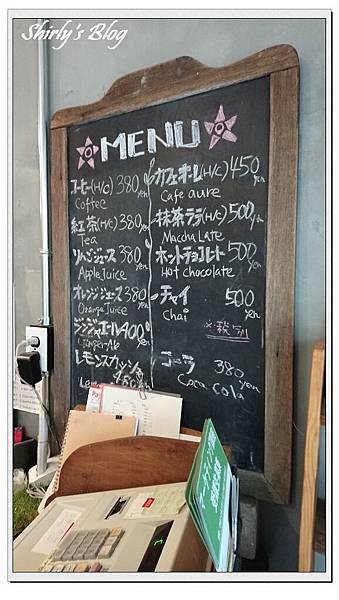 Shirly's Blog
MENU
コーヒー(H/C) 380 yen
Coffee
紅茶(H/C) 380 yen
Tea
リンゴジュース 380 yen
Apple Juice
オレンジジュース 380 yen
Orange Juice
ジンジャエール 400 yen
Ginger Ale
レモンスカッシュ
480
カフェオーレ(H/C) 450 yen
Cafe aure
抹茶ラテ(H/C) 500 yen
Maccha Late
ホットチョコレート 500 yen
Hot chocolate
チャイ 500 yen
Chai
※税別
コーラ 380 yen
Coca Cola